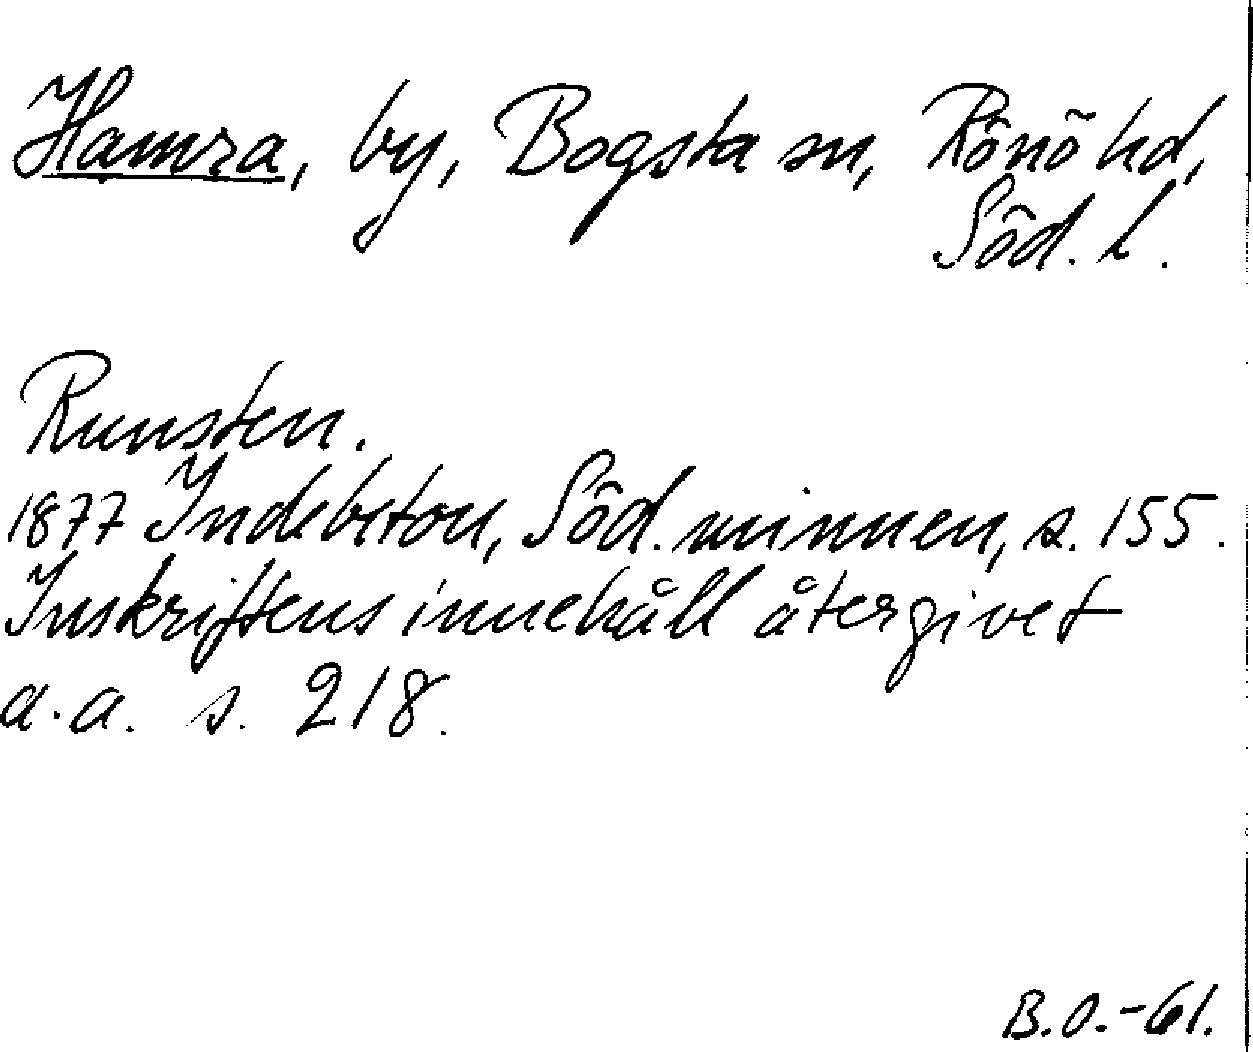 Hamra, by, Bogsta sn, Rönö hd,
Söd. l.
Runsten.
1877 Indebetou, Söd. minnen, s. 155.
Inskriftens innehåll återgivet
a.a. s. 218.
B.O.-61.